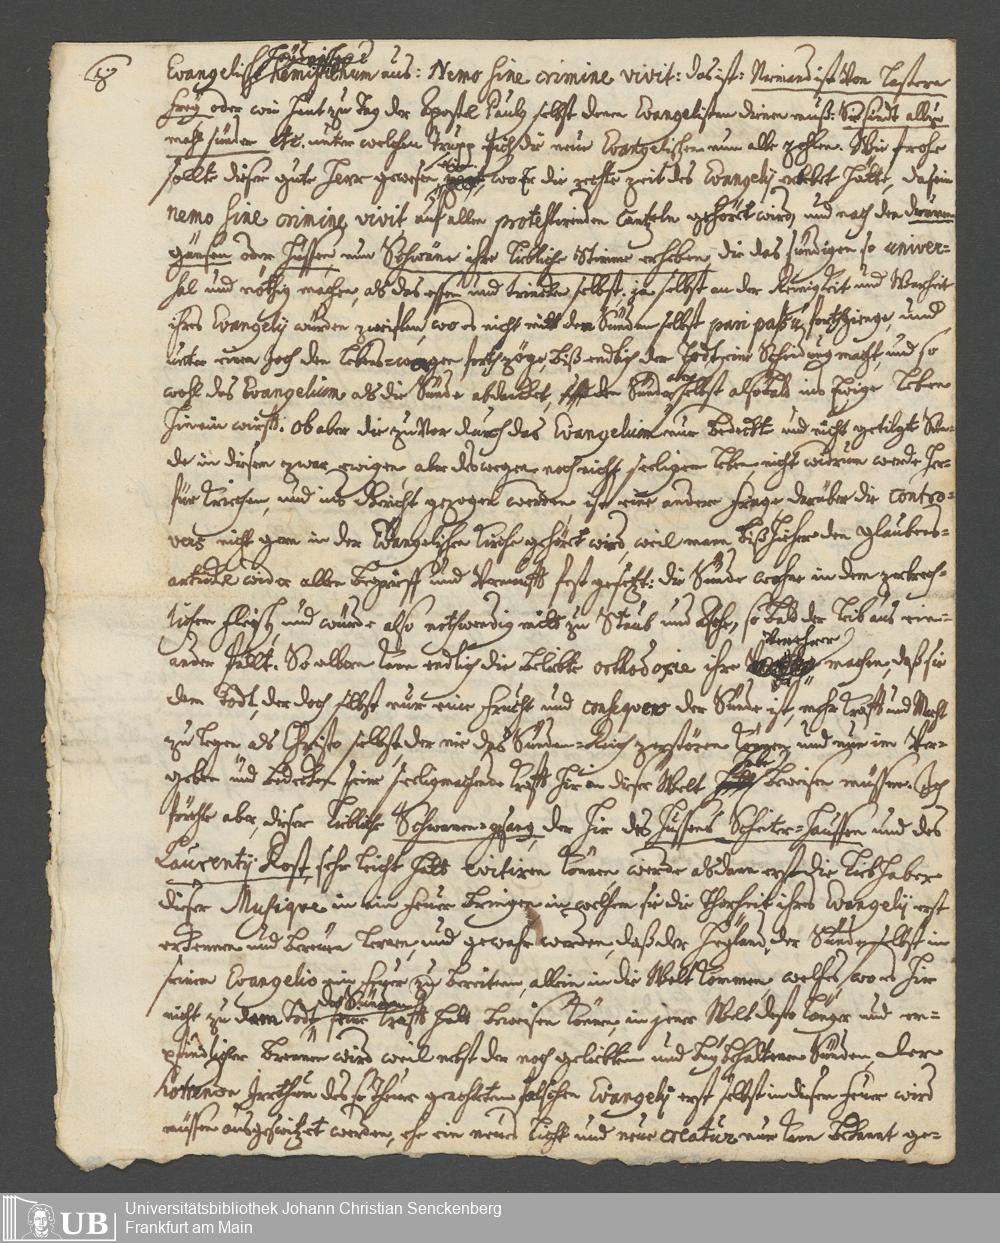 8
Evangelisch Hemistichium aus: Nemo sine crimine vivit: das ist: Niemand ist von Lastern
frey oder wie heut zu tag der Apostel Pauly selbst denen Evangelisten dienen muß: Sie sindt allzu
mahl sünder etc. unter welchen Trupp sich die neue Evangelischen nun alle zehlen. Wie frohe
sollte dieser gute Herr gewesen seyn, wo Er die rechte zeit des Evangelij erlebet hätte, da sein
nemo sine crimine vivit auf allen protestirenden Cantzeln gehöret wird, und nach den
gänsen oder Hussen nun Schwäne ihre liebliche Stimme erheben, die das sündigen so univer-
sal und nöthig machen, als das essen und trincken selbst; ja selbst an der Reinigkeit und Warheit
ihres Evangelij würden zweiflen, wo es nicht mit den Sünden selbst pari passu fortgienge, und
unter einem Joch den Lebens-wagen fortzöge, biß endlich der Todt eine Scheidung macht, und so
wohl das Evangelium als die Sünde abdancket, den Sünder aber selbst alsobald ins Ewige Leben
hinein wirfft. Ob aber die zuvor durch das Evangelium nur bedeckte und nicht getilgte Sün-
de in diesem zwar ewigen aber deswegen noch nicht seeligen Leben nicht widrum werde her-
für kriechen, und ins Gericht gezogen werden ist eine andere frage, darüber die contro-
vers nicht gern in der Evangelischen Kirche gehöret wird weil mann bißhieher den glaubens-
articul wider allen Begriff und Vernunfft fest gesetzt: die Sünde wohne in dem zerbrech-
lichen fleisch, und würde also nothwendig mit zu Staub und Asche, so bald der Leib aus ein-
ander fällt. So albern kan endlich die beliebte orthodoxie ihre Verehrer machen, daß sie
dem Todt, der doch selbst nur eine frucht und consequens der Sünde ist, mehr krafft und Macht
zu legen als Christo selbst, der nie das Sünden-Reich zerstören können und nun im Ver-
geben und bedecken seine seeligmachende krafft hier in dieser Welt habe beweisen müssen. Ich
förchte aber, dieser liebliche Schwanen-gesang, der hier des Hussens Scheiter-hauffen und des
Laurentij Rost, sehr leicht hatt evitiren können werde alsdann erst die Liebhaber
dieser Musique in ein feuer bringen in welchem sie die Thorheit ihres Evangelij erst
erkennen und bereuen lernen, und gewahr werden, daß der Heyland, der Sünde selbst in
seinem Evangelio ein feuer zu bereiten, allein in die Welt kommen, welches, wo es hier
nicht zu dem Todt des Sünders seine krafft hatt beweisen können in jener Welt desto länger und em-
pfindlicher brennen wird weil nebst der noch geliebten und beybehaltenen Sünden, der
Irrthum des so theur geachteten falschen Evangelij erst selbst in diesem feuer wird
müssen ausgeschwitzet werden, ehe ein neues Licht und neue creatur nur kan bekannt ge-
Universitätsbibliothek Johann Christian Senckenberg
UB Frankfurt am Main